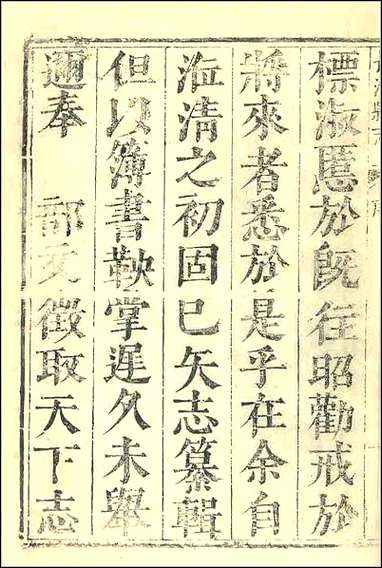 標淑慝於既往昭勸戒於
將來者悉於是乎在余自
涖清之初固已矢志纂輯
但以簿書鞅掌遲久未舉
邇奉　部文徵取天下志